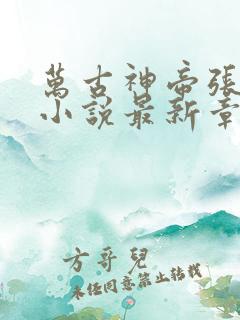 萬古神帝張
小說最新章
方哥兒
未經同意禁止轉載